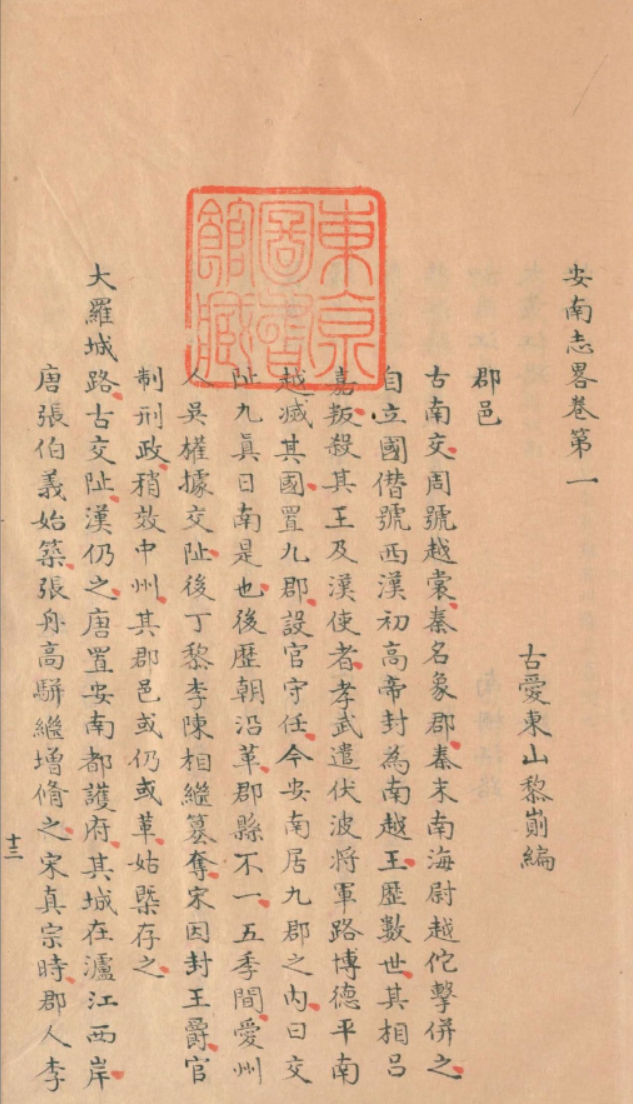 安南志畧卷第一
古愛東山黎崱編
郡邑
古南交周號越裳秦名象郡秦末南海尉越佗擊併之
自立國僣號西漢初高帝封為南越王歷數世其相呂
嘉叛殺其王及漢使者孝武遣伏波將軍路博德平南
越滅其國置九郡設官守任今安南居九郡之內曰交
阯九真日南是也後歷朝沿革郡縣不一五季間愛州
人吳權據交阯後丁黎李陳相繼篡奪宋因封王爵官
制刑政稍效中州其郡邑或仍或革姑槩存之
大羅城路古交阯漢仍之唐置安南都護府其城在瀘江西岸
唐張伯義始築張舟高駢繼增脩之宋真宗時郡人李
十三
東京
圖書
館藏